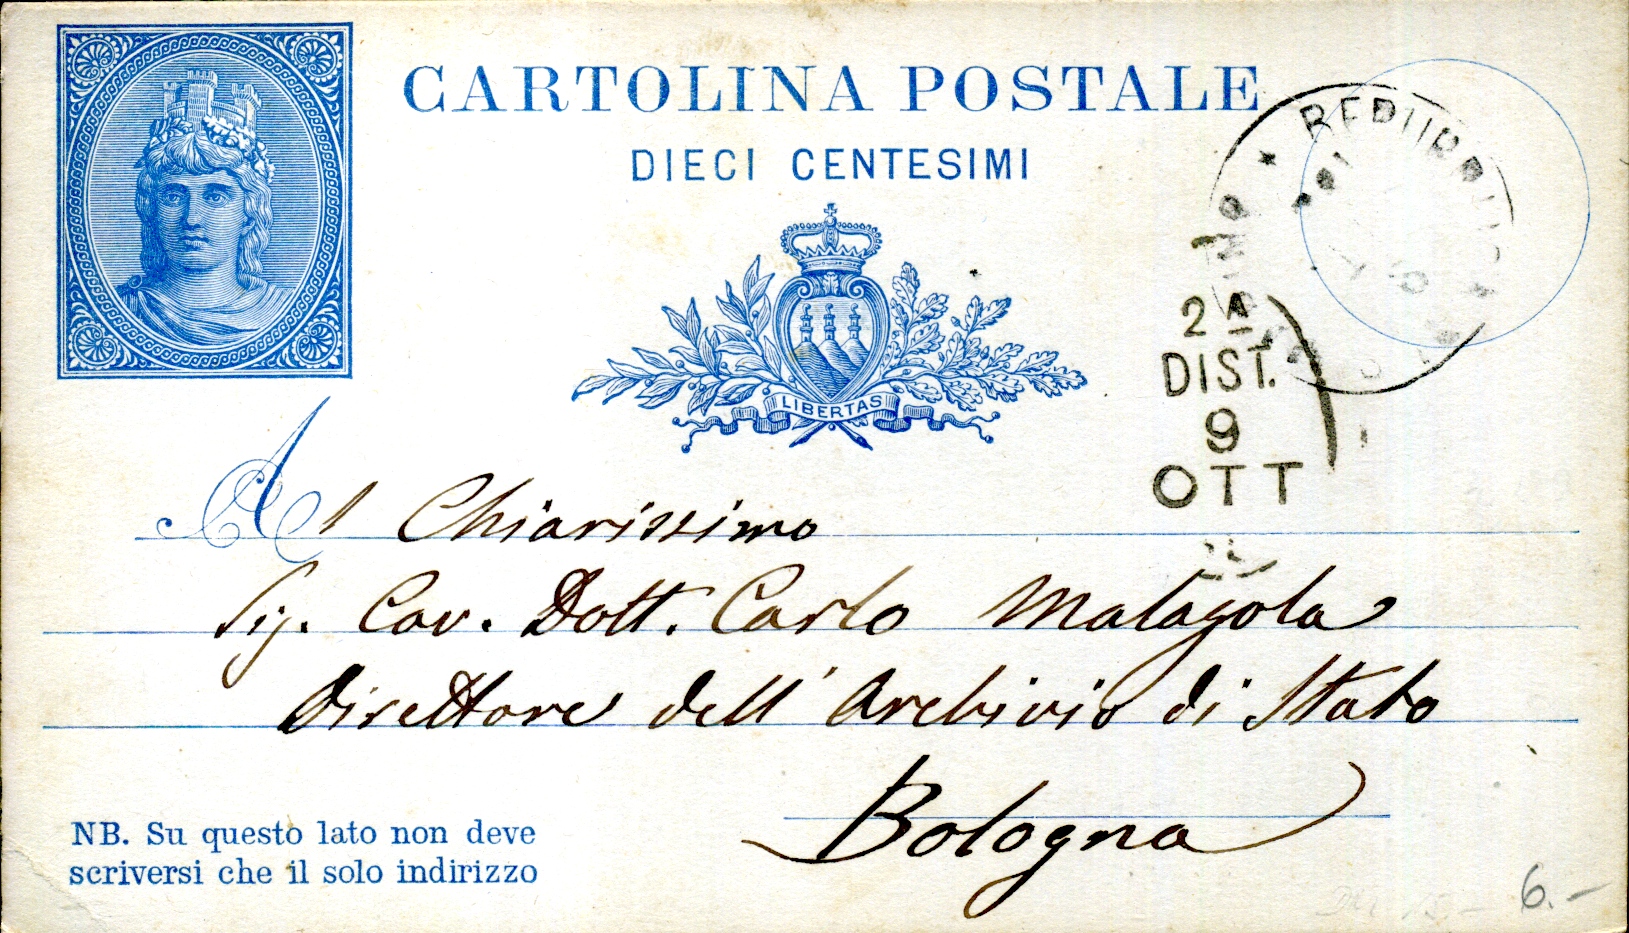 CARTOLINA POSTALE
DIECI CENTESIMI
LIBERTAS
2A
DIST.
9
OTT
Al Chiarissimo
Sig. Cav. Dott. Carlo Malagola
Direttore dell' Archivio di Stato
Bologna
NB. Su questo lato non deve
scriversi che il solo indirizzo
6.-